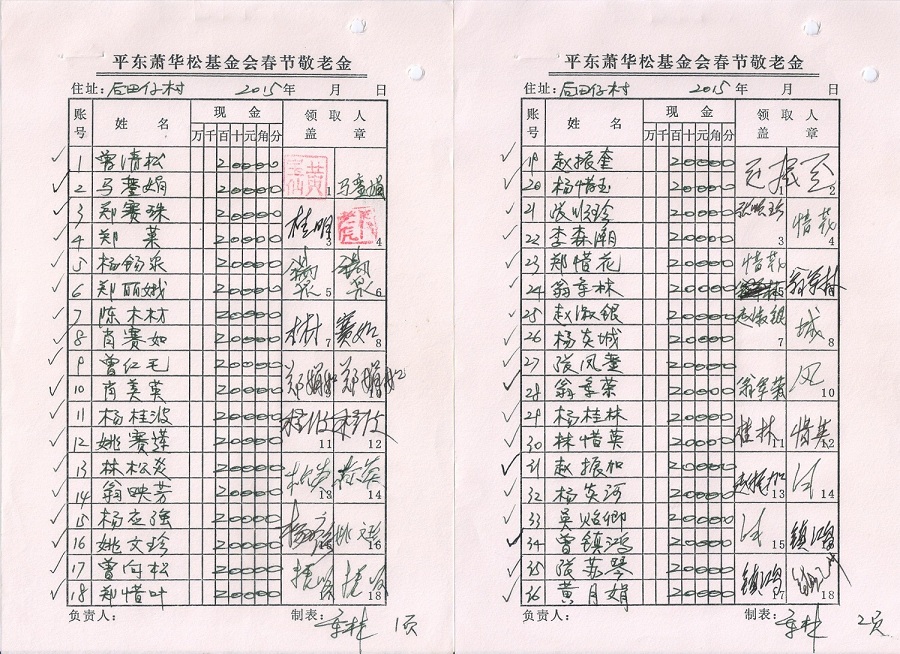 平东萧华松基金会春节敬老金
住址：后田仔村 2015年 月 日
账号 姓名 现金 领取人盖章
万千百十元角分
1 曾清松 20000 1
2 马銮娟 20000 马銮娟
3 郑赛珠 20000 桂明 3
4 郑叶 20000 4
5 杨锡泉 20000 5
6 郑丽娥 20000 6
7 陈木材 20000 材 7
8 肖赛如 20000 赛如 8
9 曾红毛 20000
10 肖美英 20000
11 杨桂波 20000 11
12 姚赛 20000 12
13 林松炎 20000 13
14 翁映芳 20000 14
15 杨应强 20000
16 姚文珍 20000 姚文珍 16
17 曾向松 20000
18 郑惜叶 20000 18
负责人： 制表： 1页
平东萧华松基金会春节敬老金
住址：后田仔村 2015年 月 日
账号 姓名 现金 领取人盖章
万千百十元角分
19 赵振奎 20000
20 杨惜玉 20000 2
21 20000 3
22 李森潮 20000 4
23 郑惜花 20000
24 翁季林 20000
25 赵淑银 20000 赵淑银 7
26 杨炎城 20000 城 8
27 张凤銮 20000
28 翁季荣 20000 风 10
29 杨桂林 20000 桂林 11
30 林惜英 20000 惜英 12
31 赵振加 20000 赵振加 13
32 杨炎河 20000 14
33 吴焰卿 20000 15
34 曾镇鸿 20000 镇鸿
35 张苏琴 20000 镇鸿 17
36 黄月娟 20000 18
负责人： 制表： 2页